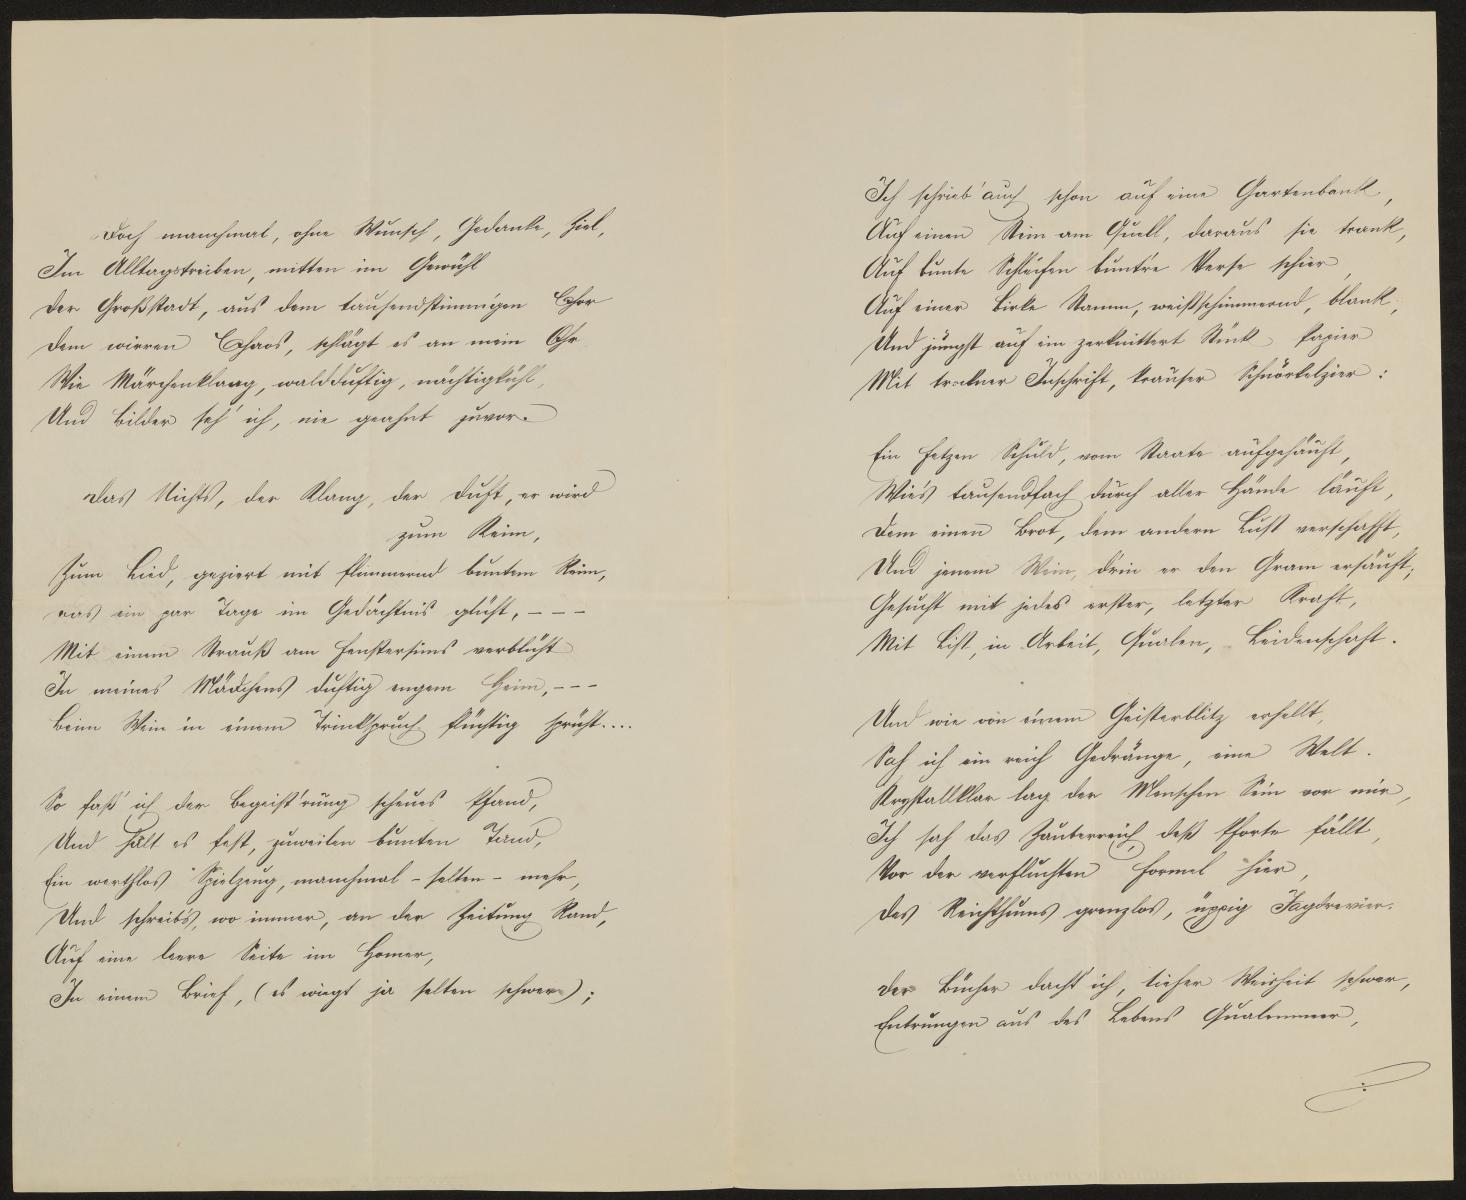 Doch manchmal, ohne Wunsch, Gedanke, Ziel,
Im Alltagstreiben, mitten im Gewühl
Der Großstadt, aus dem tausendstimmigen Chor
Dem wirren Chaos, schlägt es an mein Ohr
Wie Märchenklang, waldduftig, nächtigkühl,
Und Bilder seh' ich, nie geahnt zuvor.
Das Nichts, der Klang, der Duft, er wird
zum Keim,
Zum Lied, geziert mit flimmernd buntem Reim,
Das ein par Tage im Gedächtnis glüht, – – –
Mit einem Strauß am Fenstersims verblüht
In meines Mädchens duftig engem Heim, – – –
Beim Wein in einem Trinkspruch flüchtig sprüht....
So faß' ich der Begeist'rung scheues Pfand,
Und halt es fest, zuweilen bunten Tand,
Ein werthlos Spielzeug, manchmal – selten – mehr,
Und schreib's, wo immer, an der Zeitung Rand,
Auf eine leere Seite im Homer,
In einem Brief, (es wiegt ja selten schwer);
Ich schrieb' auch schon auf eine Gartenbank,
Auf einen Stein am Quell, daraus sie trank,
Auf bunte Schleifen bunt're Verse schier,
Auf einer Birke Stamm, weißschimmernd, blank,
Und jüngst auf ein zerknittert Stück Papier
Mit trockner Inschrift, krauser Schnörkelzier:
Ein Fetzen Schuld, vom Staate aufgehäuft,
Wie's tausendfach durch aller Hände läuft,
Dem einen Brot, dem andern Lust verschafft,
Und jenem Wein, drin er den Gram ersäuft;
Gesucht mit jedes erster, letzter Kraft,
Mit List, in Arbeit, Qualen, Leidenschaft.
Und wie von einem Geisterblitz erhellt,
Sah ich ein reich Gedränge, eine Welt.
Krystallklar lag der Menschen Sein vor mir,
Ich sah das Zauberreich, deß Pforte fällt,
Vor der verfluchten Formel hier,
Des Reichthums grenzlos, üppig Jagdrevier.
Der Bücher dacht' ich, tiefer Weisheit schwer,
Entrungen aus des Lebens Qualenmeer,